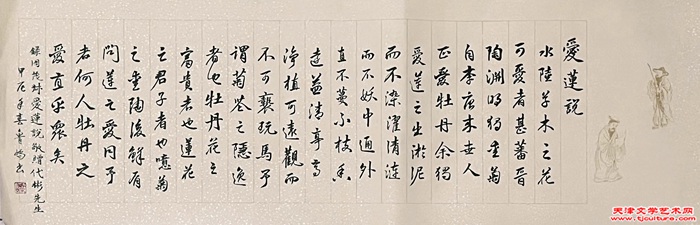 愛蓮說
水陸草木之花
可愛者甚蕃晉
陶淵明獨愛菊
自李唐來世人
愛牡丹余獨
愛蓮之出淤泥
而不染濯清漣
而不妖中通外
直不蔓不枝香
遠益清亭亭
淨植可遠觀而
不可褻玩焉予
謂菊花之隱逸
者也牡丹花之
富貴者也蓮花
之君子者也噫菊
之愛陶後鮮有
聞蓮之愛同予
者何人牡丹之
愛宜乎眾矣
錄周茂叔愛蓮說敬贈代彬先生
甲辰年書
天津文学艺术网
www.tjculture.com